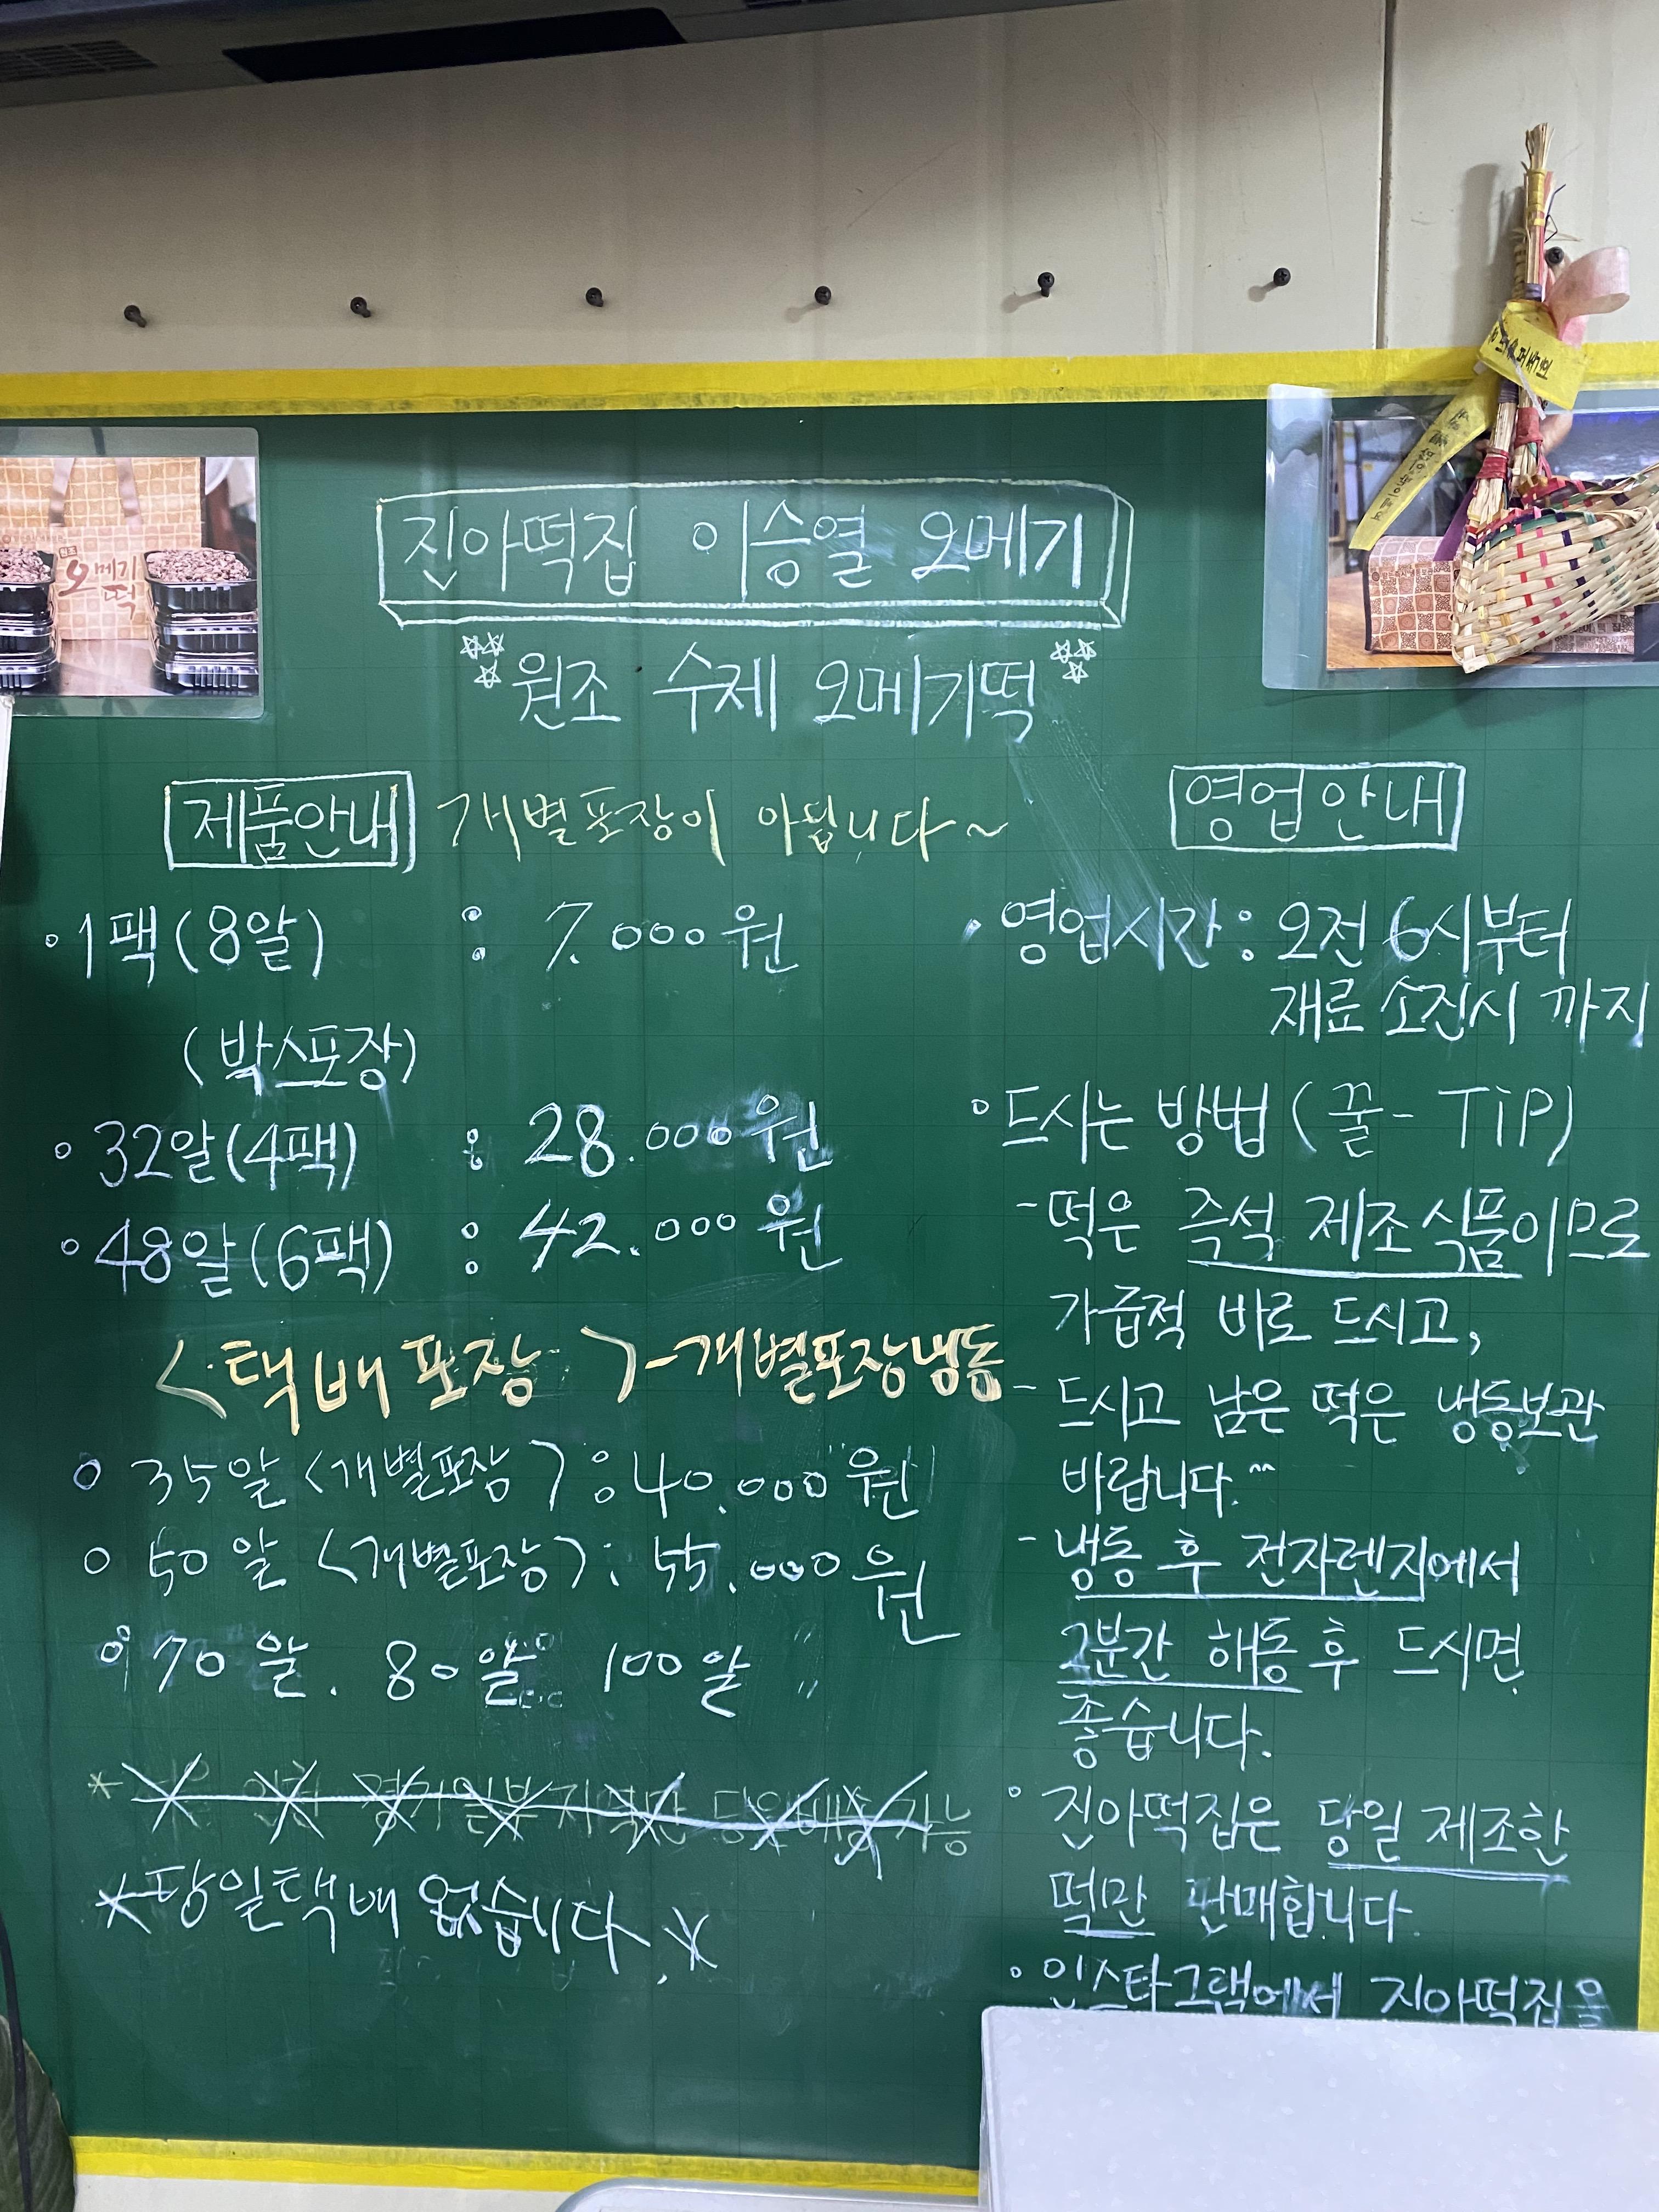 진아떡집 이승열 오메기
원조 수제 오메기떡
제품안내 개별포장이 아닙니다~
1팩(8알) : 7.000원
(박스포장)
32알(4팩) : 28.000원
48알(6팩) : 42.000원
<택배포장>-개별포장냉동
35알<개별포장>:40.000원
50알<개별포장>:55.000원
70알. 80알 100알 〃
* 당일택배 없습니다. *
영업안내
영업시간: 오전 6시부터
재료 소진시 까지
드시는 방법(꿀-TiP)
- 떡은 즉석 제조식품이므로
가급적 바로 드시고,
- 드시고 남은 떡은 냉동보관
바랍니다.^^
- 냉동 후 전자렌지에서
2분간 해동 후 드시면
좋습니다.
진아떡집은 당일 제조한
떡만 판매합니다.
인스타그램에서 진아떡집을
원조
오메기
떡